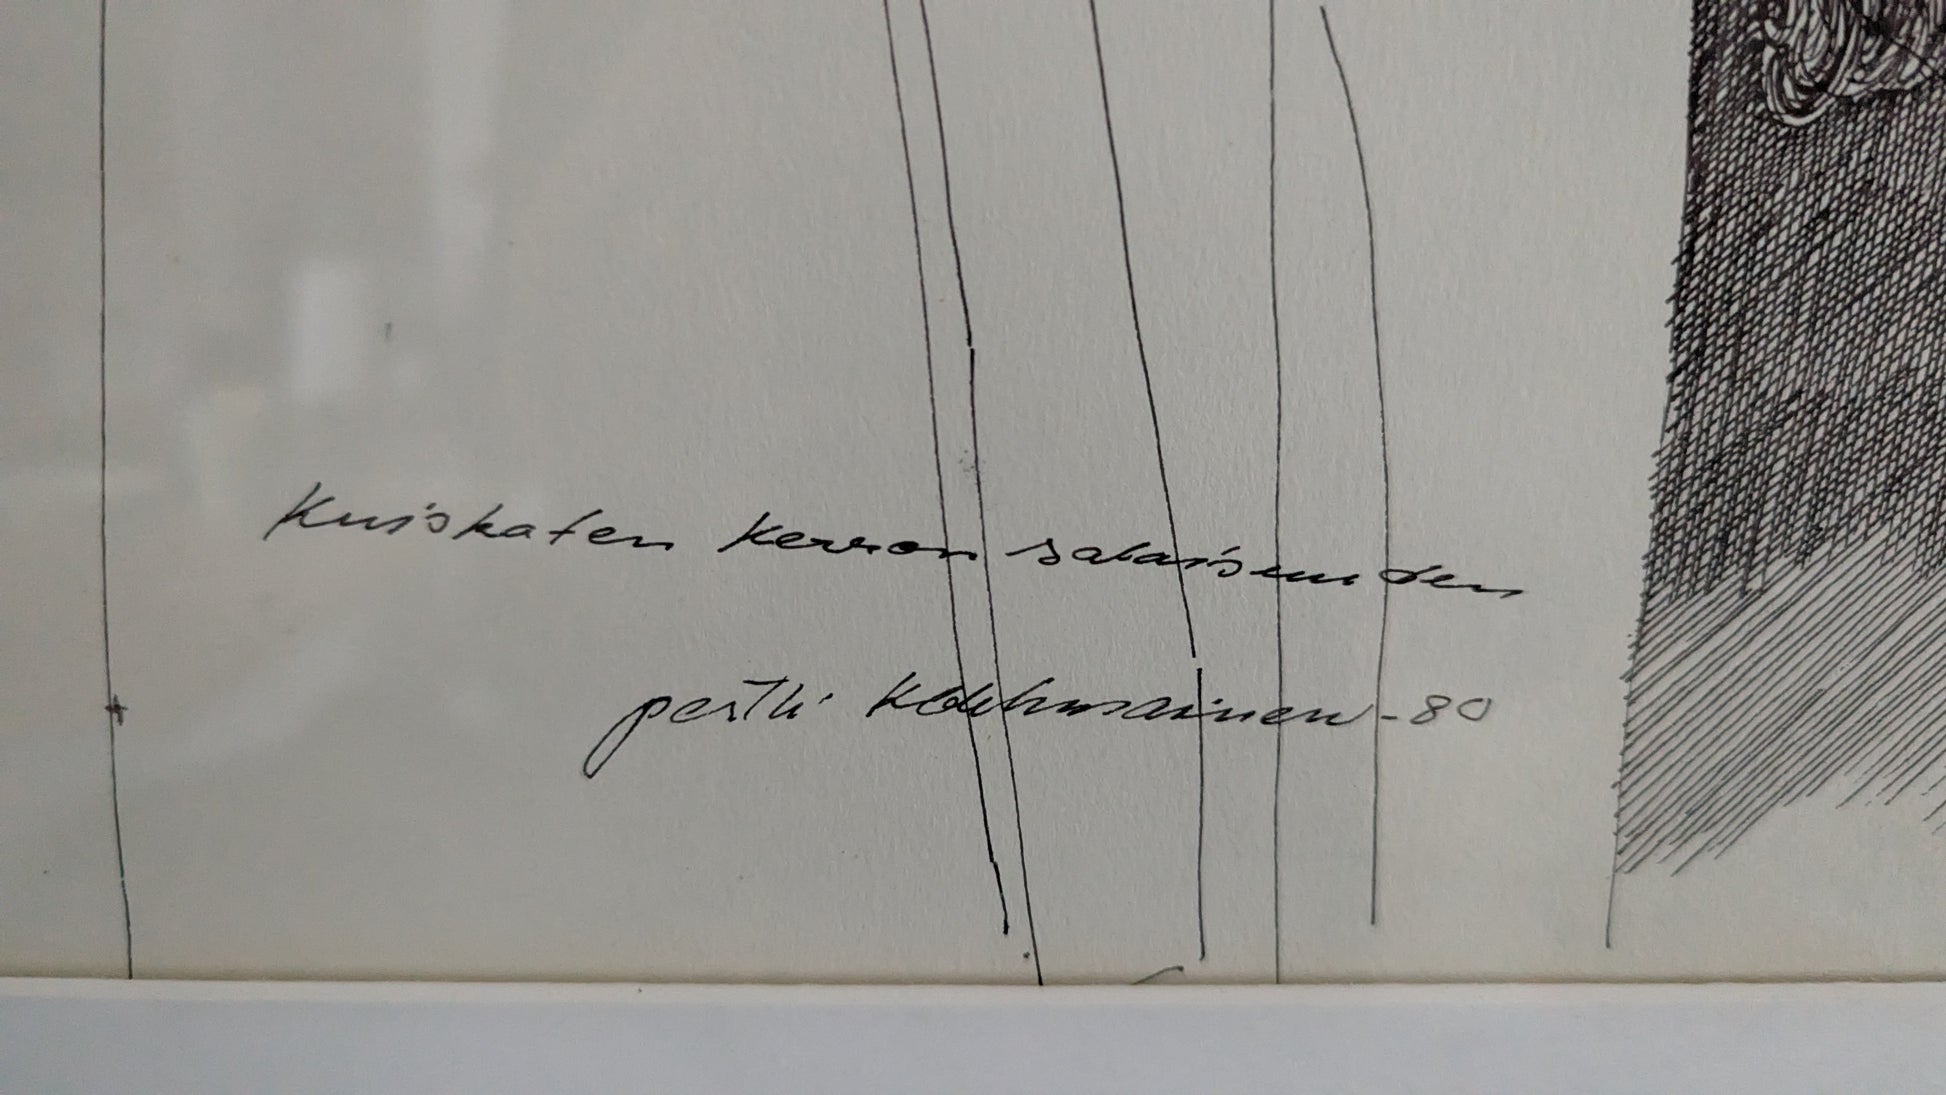 Kuiskaten kerron salaisuuden
pertti Kolehmainen -80